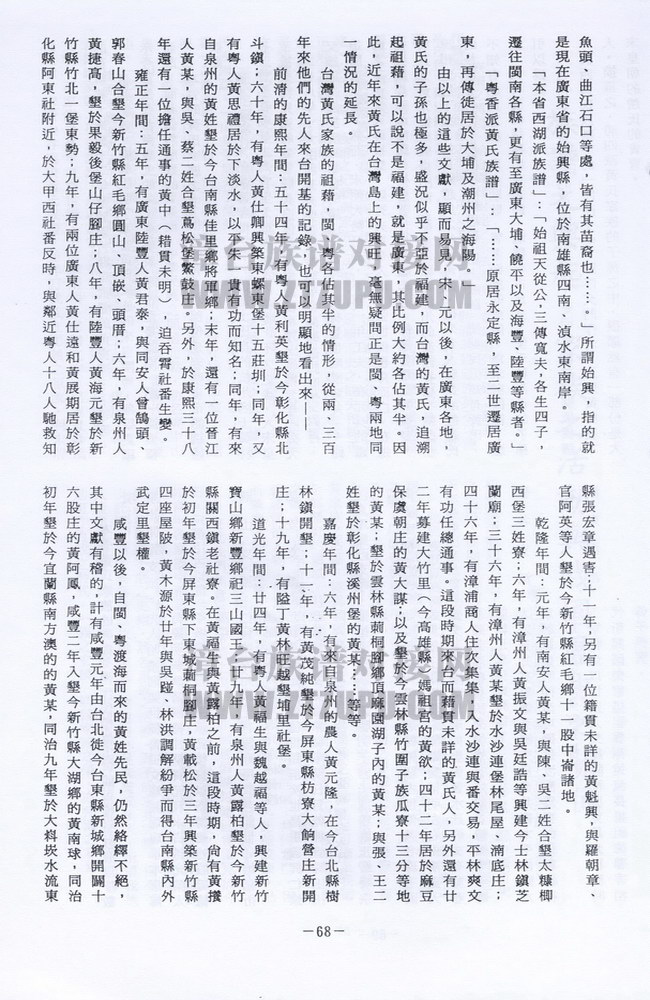 魚頭、曲江石口等處，皆有其苗裔也……。」所謂始興，指的就
是現在廣東省的始興縣，位於南雄縣四南、湞水東南岸。
「本省西湖派族譜」：「始祖天從公，三傳寬夫，各生四子，
遷往閩南各縣，更有至廣東大埔、饒平以及海豐、陸豐等縣者。」
「粵香派黃氏族譜」：「……原居永定縣，至二世遷居廣
東，再傳徙居於大埔及潮州之海陽。」
由以上的這些文獻，顯而易見，宋、元以後，在廣東各地，
黃氏的子孫也極多，盛況似乎不亞於福建，而台灣的黃氏，追溯
起祖藉，可以說不是福建，就是廣東，其比例大約各佔其半。因
此，近年來黃氏在台灣島上的興旺，毫無疑問正是閩、粵兩地同
一情況的延長。
台灣黃氏家族的祖藉，閩、粵各佔其半的情形，從兩、三百
年來他們的先人來台開基的記錄，也可以明顯地看出來——
前清的康熙年間：五十四年，有粵人黃利英墾於今彰化縣北
斗鎮；六十年，有粵人黃仕卿興築東螺東堡十五莊圳；同年，又
有粵人黃思禮居於下淡水，以平朱一貴有功而知名；同年，有來
自泉州的黃姓墾於今台南縣佳里鄉將軍鄉；末年，還有一位晉江
人黃某，與吳、蔡二姓合墾蔦松堡繁鼓庄。另外，於康熙三十八
年還有一位擔任通事的黃中（籍貫未明），迫吞霄社番生變。
雍正年間：五年，有廣東陸豐人黃君泰，與同安人曾鴿頭、
郭春山合墾今新竹縣紅毛鄉圓山、頂崁、頭厝；六年，有泉州人
黃捷高，墾於果毅後堡山仔腳庄；八年，有陸豐人黃海元墾於新
竹縣竹北一堡東勢；九年，有兩位廣東人黃仕遠和黃展期居於彰
化縣阿東社附近，於大甲西社番反時，與鄰近粵人十八人馳救知
縣張宏章遇害；十一年，另有一位籍貫未詳的黃魁興，與羅朝章、
官阿英等人墾於今新竹縣紅毛鄉十一股中崙諸地。
乾隆年間：元年，有南安人黃某，與陳、吳二姓合墾太糠榔
西堡三姓寮；六年，有漳州人黃振文與吳廷誥等興建今士林鎮芝
蘭廟；三十六年，有漳州人黃某墾於水沙連堡林尾屋、湳底庄；
四十六年，有漳浦商人住次集集，入水沙連與番交易，平林爽文
有功任總通事。這段時期來台而藉貫未詳的黃氏人，另外還有廿
二年募建大竹里（今高雄縣）媽祖宮的黃欲；四十二年居於麻豆
保虞朝庄的黃大謀；以及墾於今雲林縣竹圍子族瓜寮十三分等地
的黃某；墾於雲林縣莿桐腳鄉頂麻園湖子內的黃某；與張、王二
姓墾於彰化縣溪州堡的黃某……等等。
嘉慶年間：六年，有來自泉州的農人黃元隆，在今台北縣樹
林鎮開墾；十一年，有黃茂純墾於今屏東縣枋寮大餉營庄新開
庄；十九年，有隘丁黃林旺越墾埔里社堡。
道光年間：廿四年，有粵人黃福生與魏越福等人，興建新竹
寶山鄉新豐鄉祀三山國王；廿九年，有泉州人黃露柏墾於今新竹
縣關西鎮老社寮。在黃福生與黃露柏之前，這段時期，尚有黃攢
於初年墾於今屏東縣下東城莿桐腳庄，黃載松於三年興築新竹縣
四座屋陂，黃木源於廿年與吳踫、林洪調解紛爭而得台南縣內外
武定里墾權。
咸豐以後，自閩、粵渡海而來的黃姓先民，仍然絡繹不絕，
其中文獻有稽的，計有咸豐元年由台北徙今台東縣新城鄉開闢十
六股庄的黃阿鳳，咸豐二年入墾今新竹縣大湖鄉的黃南球，同治
初年墾於今宜蘭縣南方澳的的黃某，同治九年墾於大科崁水流東
—68—
辛台族谱对接网
WWW.7Z7UPU.COM
辛台族谱对接网
WWW.7Z7UPU.COM